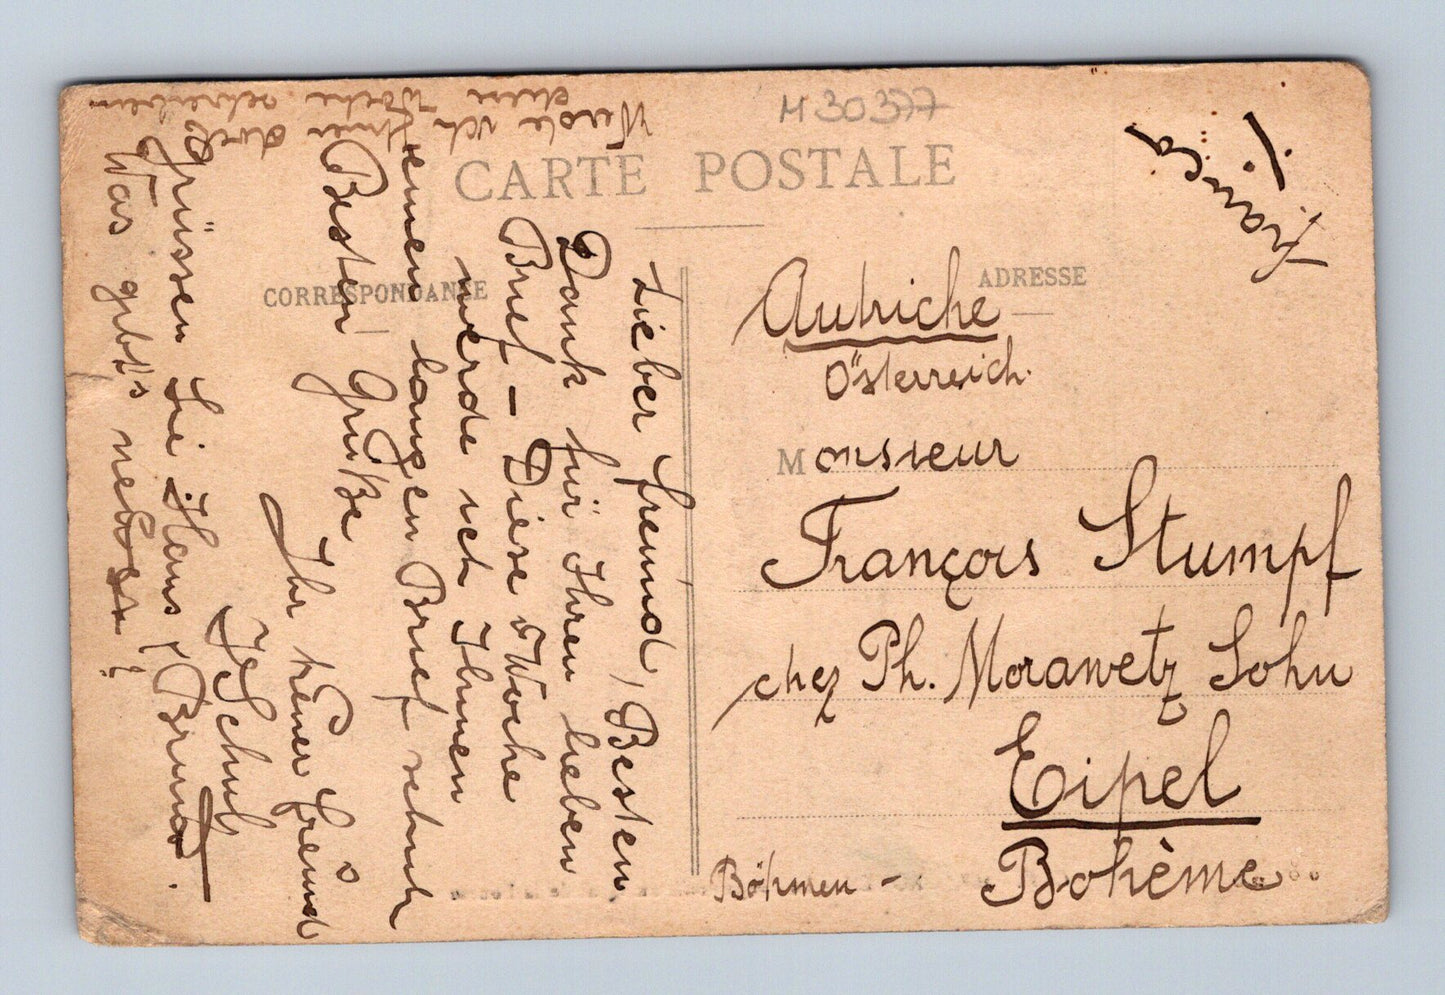 M 30377
CARTE POSTALE
CORRESPONDANCE
ADRESSE
Lieber Freund, Besten
Dank für Ihren lieben
Brief – Diese Woche
werde ich Ihnen
einen langen Brief
Besten Grüße
Ihr treuer Freund
Grüssen Sie Hans, Bruno.
Was gibt's neues?
Werde ich Ihnen
diese Woche schreiben
Autriche
Österreich.
Monsieur
François Stumpf
chez Ph. Morawetz Sohn
Eipel
Böhmen - Bohème